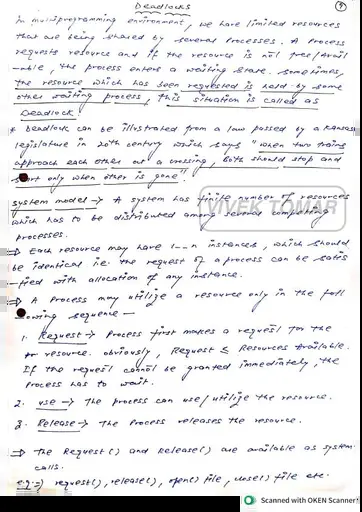 Deadlocks
In multiprogramming environment, we have limited resources
that are being shared by several processes. A Process
requests resource and if the resource is not free/avail
-able, the process enters a waiting state. Sometimes,
the resource which has been requested is held by some
other waiting process, this situation is called as
Deadlock.
* Deadlock can be illustrated from a law passed by a Kansas
legislature in 20th century which says "when two trains
approach each other at a crossing, both should stop and
start only when other is gone"
System model → A system has finite number of resources
which has to be distributed among several competing
processes.
VIVEK TOMAR
⇒ Each resource may have 1--n instances, which should
be identical i.e. the request of a process can be satis
-fied with allocation of any instance.
⇒ A Process may utilize a resource only in the foll
owing sequence —
1. Request → Process first makes a request for the
resource. obviously, Request ≤ Resources Available.
If the request cannot be granted immediately, the
process has to wait.
2. Use → The process can use/utilize the resource.
3. Release → The Process releases the resource.
⇒ The Request() and Release() are available as system
calls.
e.g. ⇒ request(), release(), open() file, close() file etc.
Scanned with OKEN Scanner